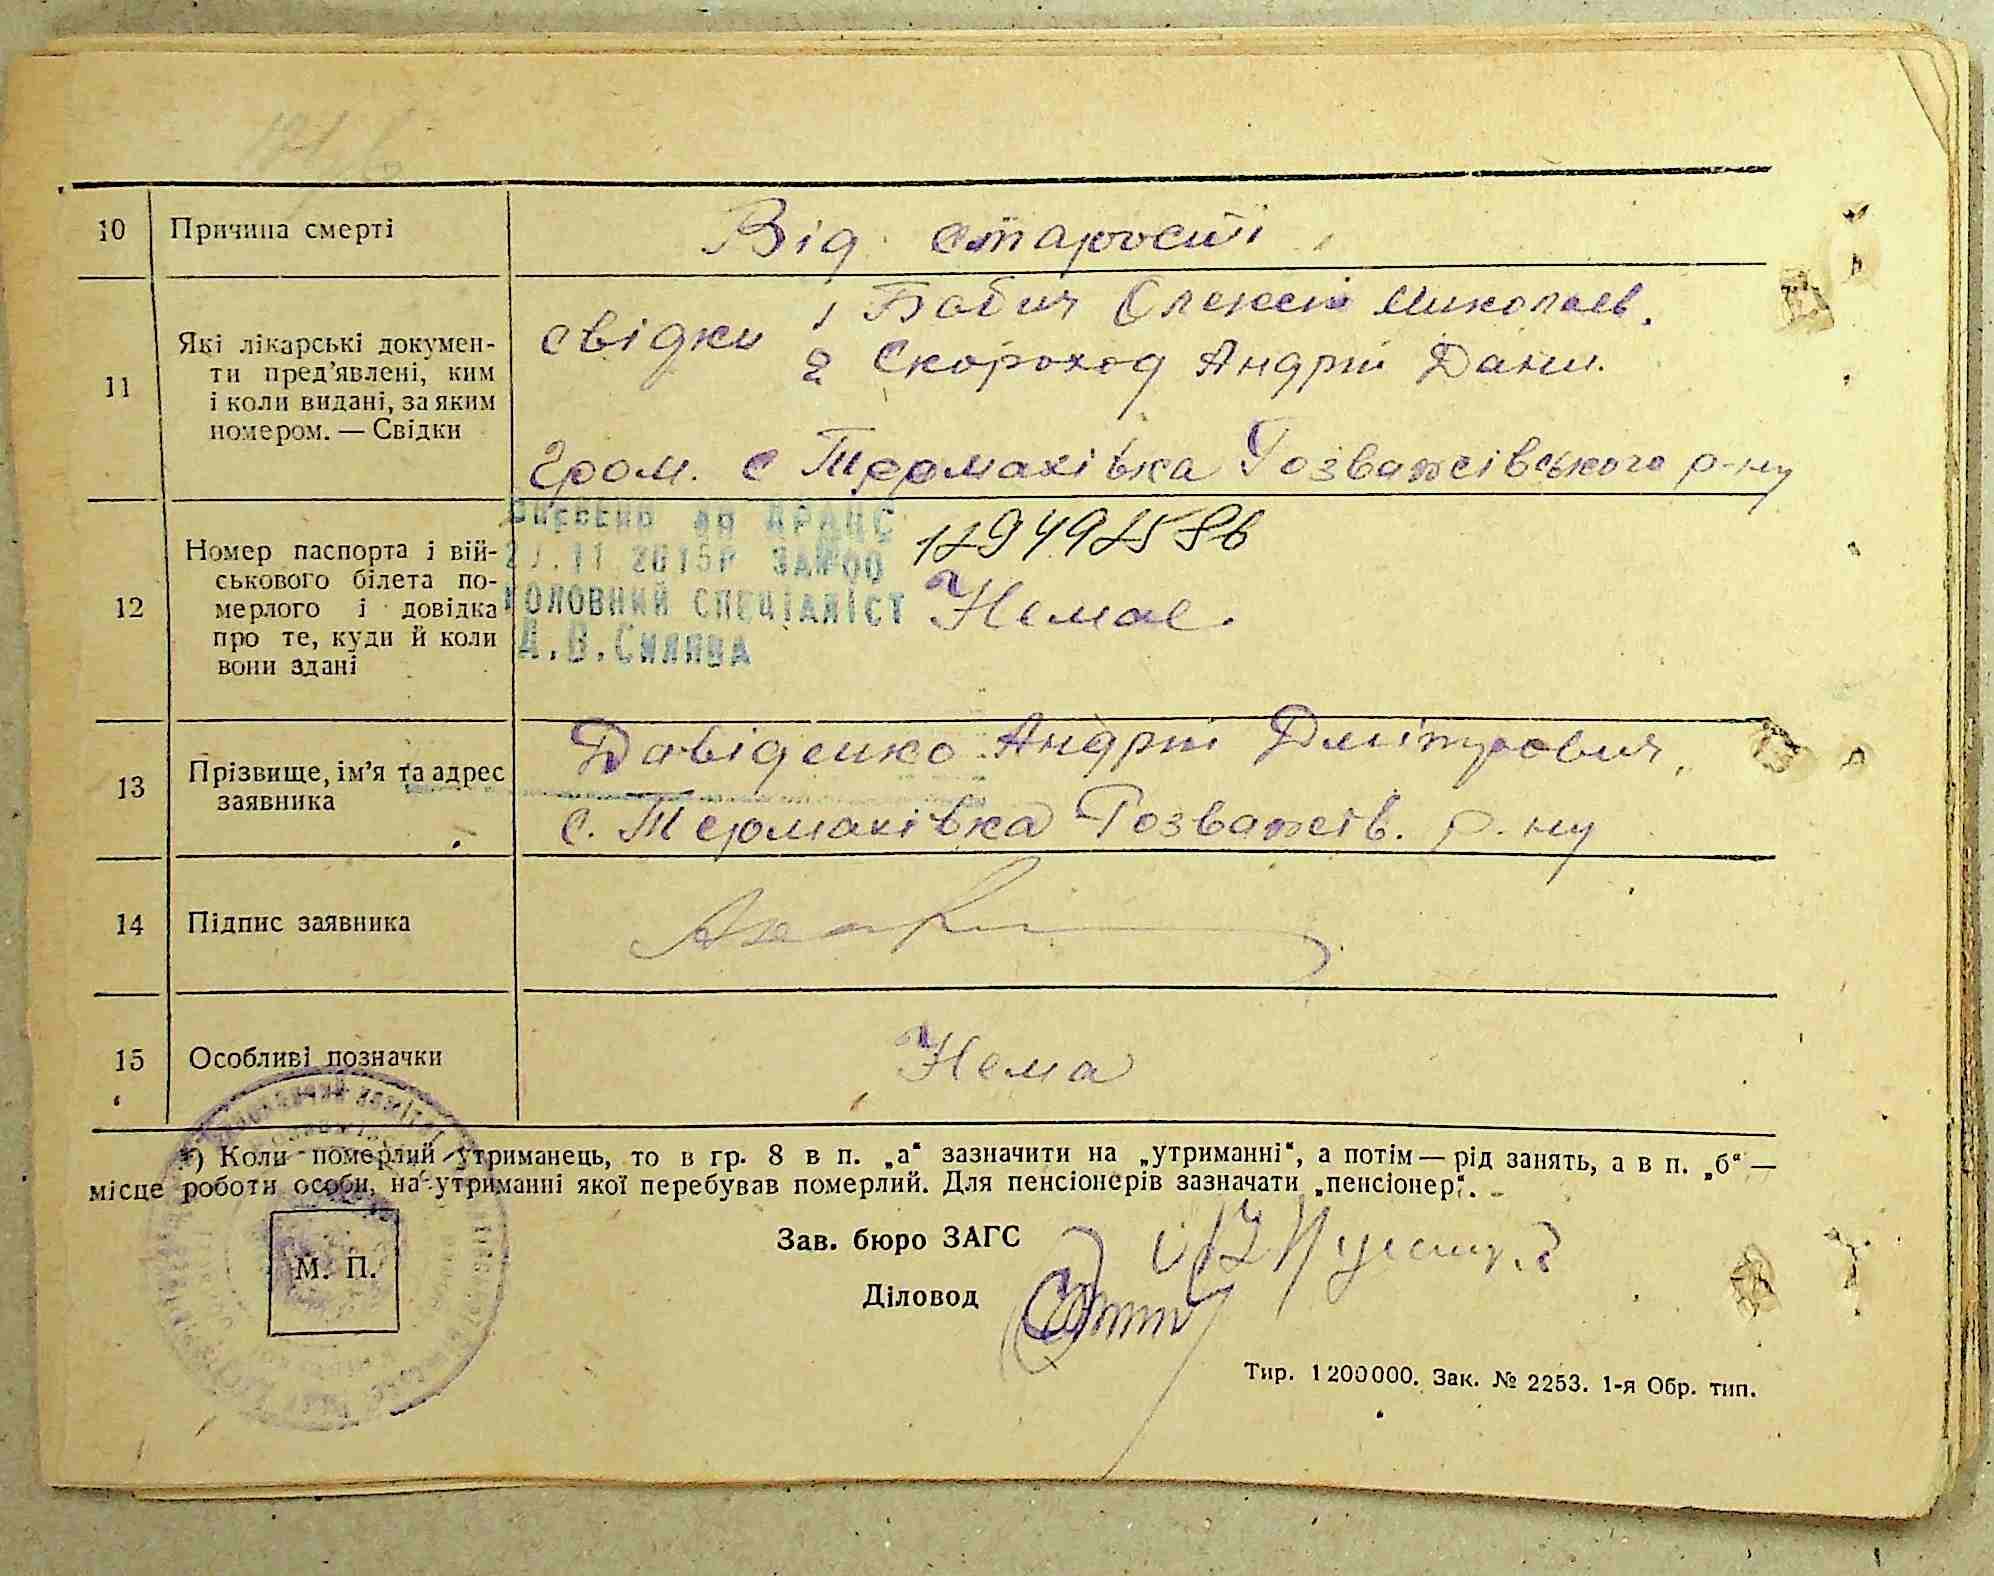 10 Причина смерті Від старості
11 Які лікарські докумен-
ти пред'явлені, ким
і коли видані, за яким
номером. — Свідки
свідки 1 Бабич Олексій Миколаєв.
2 Скороход Андрій Дани.
Гром. с Термахівка Розважівського р-ну
12 Номер паспорта і вій-
ськового білета по-
мерлого і довідка
про те, куди й коли
вони здані
ДРАЦС
11 2015р
головний спеціаліст
Немає.
13 Прізвище, ім'я та адрес
заявника
Давіденко Андрій Дмітрович,
с. Термахівка Розважів. р. ну
14 Підпис заявника
15 Особливі позначки Нема
*) Коли померлий утриманець, то в гр. 8 в п. „а“ зазначити на „утриманні“, а потім — рід занять, а в п. „б“ —
місце роботи особи, на утриманні якої перебував померлий. Для пенсіонерів зазначати „пенсіонер“.
Зав. бюро ЗАГС
М. П.
Діловод
Тир. 1 200 000. Зак. № 2253. 1-я Обр. тип.